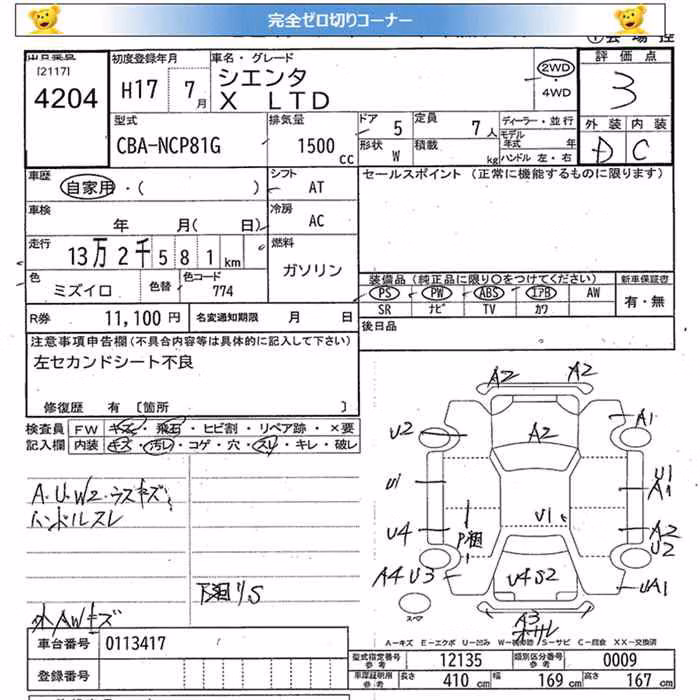 完全ゼロ切りコーナー
[2117]
4204
初度登録年月
H17 7月
車名・グレード
シエンタ
X LTD
2WD
・4WD
評価点
3
外装 内装
D C
型式
CBA-NCP81G
排気量
1500 cc
ドア 5
形状 W
定員 7人
積載 kg
ディーラー・並行
モデル年式 年
ハンドル 左・右
車歴
自家用・( )
シフト
AT
セールスポイント (正常に機能するものに限ります)
車検
年 月( 日)
冷房
AC
走行
13万2千581km
燃料
ガソリン
色
ミズイロ
色替
色コード
774
装備品 (純正品に限り○をつけてください)
PS PW ABS エアB AW
SR ナビ TV カワ
新車保証書
有・無
R券 11,100円
名変通知期限 月 日
後日品
注意事項申告欄 (不具合内容等は具体的に記入して下さい)
左セカンドシート不良
修復歴 有 [箇所 ]
検査員記入欄
FW キズ・飛石・ヒビ割・リペア跡・×要
内装 キズ・汚レ・コゲ・穴・スレ・キレ・破レ
A.U.W2.ウスキズ
ハンドルスレ
下廻りS
外AWキズ
A2 A2
U2 A2 A1
U1 U1 A1
U4 U1 A2 U2
A4 U3 U4S2 UA1
スペア
A3
A-キズ E-エクボ U-凹み W-補修跡 S-サビ C-腐食 XX-交換済
車台番号 0113417
登録番号
型式指定番号 参考 12135
類別区分番号 参考 0009
車庫証明用 参考 長さ 410 cm 幅 169 cm 高さ 167 cm